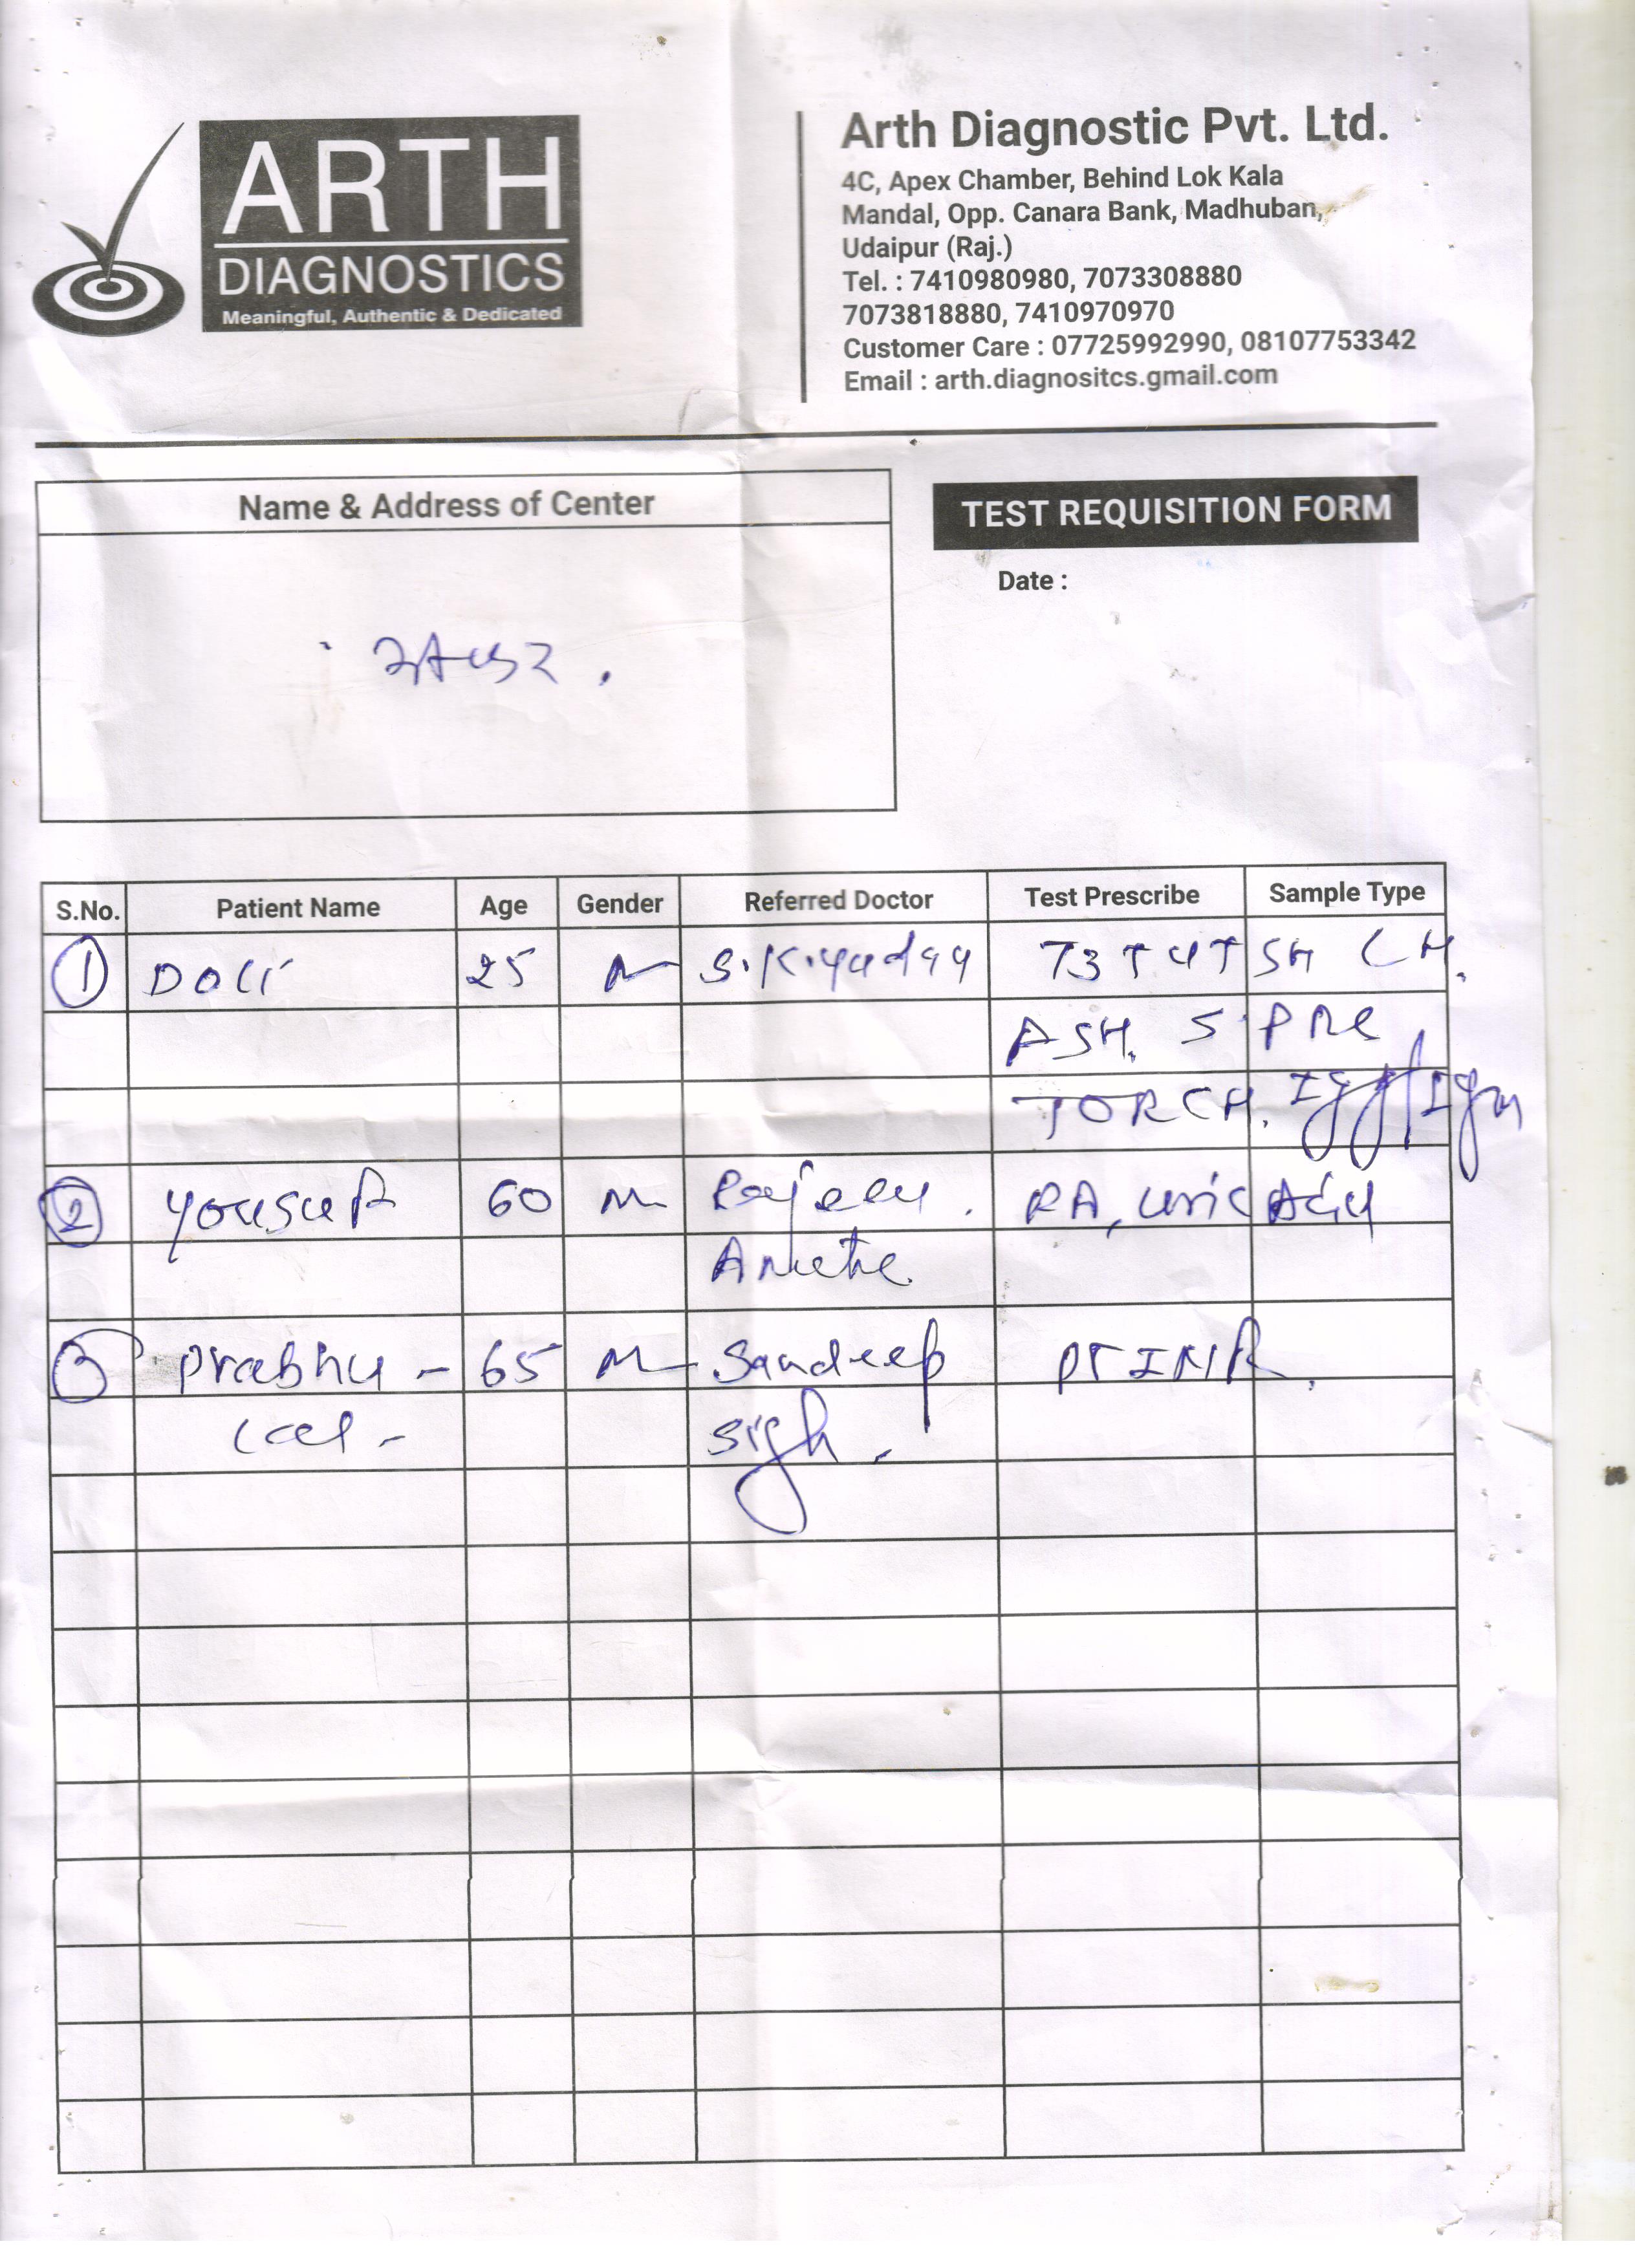 ARTH
DIAGNOSTICS
Meaningful, Authentic & Dedicated
Arth Diagnostic Pvt. Ltd.
4C, Apex Chamber, Behind Lok Kala
Mandal, Opp. Canara Bank, Madhuban,
Udaipur (Raj.)
Tel. : 7410980980, 7073308880
7073818880, 7410970970
Customer Care : 07725992990, 08107753342
Email : arth.diagnositcs.gmail.com
Name & Address of Center
TEST REQUISITION FORM
Date :
S.No. Patient Name Age Gender Referred Doctor Test Prescribe Sample Type
1 DOLI 25 S.K.yadav T3 T4 TSH LH.
S. PRL
TORCH. IgG/IgM
2 yousuf 60 M RA, uric Acid
3 prabhu - 65 M Sandeep PT INR.
Lal - sigh.